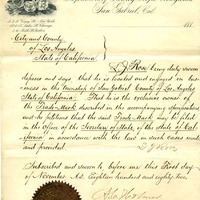 San Gabriel, Cal.
188
City and County
of Los Angeles
State of California
L J Rose being duly sworn
deposes and says that he is located and engaged in bus-
iness in the township of San Gabriel County of Los Angeles
State of California. That he is the exclusive owner of
the Trade Mark described in the accompanying specifications
and he petitions that the said Trade Mark may be filed
in the Office of the Secretary of State, of the State of Cal-
ifornia in accordance with the law in such cases made
and provided.
L J Rose
Subscribed and sworn to before me this first day
of November A.D. Eighteen hundred and eighty two